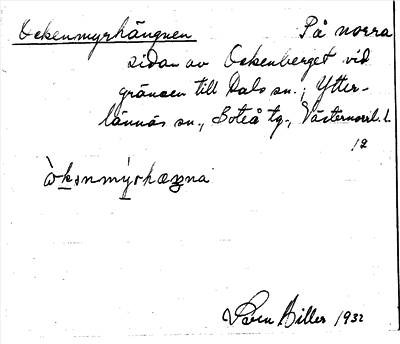 Ockenmyrhängnen På norra
sidan av Ockenberget vid
gränsen till Dals sn.; Ytter-
lännäs sn., Boteå tg., Västernorrl. l.
12
òkənmýrhæŋna
Sven Biller 1932